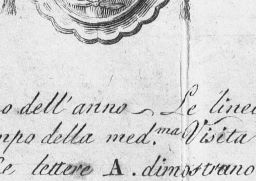 o dell'anno ~ Le linee
mpo della med.ma Visita
Le lettere A. dimostrano